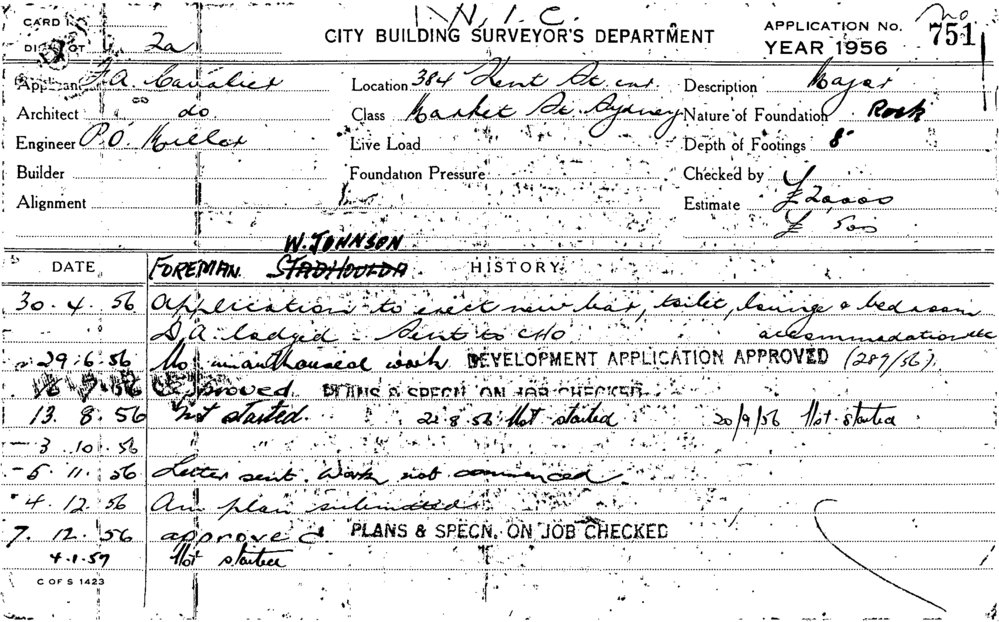 N.I.C.
CARD
CITY BUILDING SURVEYOR'S DEPARTMENT
APPLICATION No. 751
DISTRICT 2a
YEAR 1956
Applicant F.A. Cavalier
Location 384 Kent St cnr
Description Major
Architect do
Class Market St. Sydney
Nature of Foundation Rock
Engineer P.O. Miller
Live Load
Depth of Footings 8"
Builder
Foundation Pressure
Checked by
Alignment
Estimate £20000
£ 500
W. JOHNSON
DATE FOREMAN STADHOULDA HISTORY
30.4.56 Application to erect new bar, toilet, lounge & bedroom
D.A. lodged - Sent to CHO accommodation etc
29.6.56 No unauthorised work DEVELOPMENT APPLICATION APPROVED (289/56).
Approved PLANS & SPECN. ON JOB CHECKED
13.8.56 Not started. 22.8.56 Not started 20/9/56 Not started
3.10.56 " "
5.11.56 Letter sent. Work not commenced.
4.12.56 Am plan submitted
7.12.56 approved PLANS & SPECN. ON JOB CHECKED
4.1.57 Not started
C OF S 1423